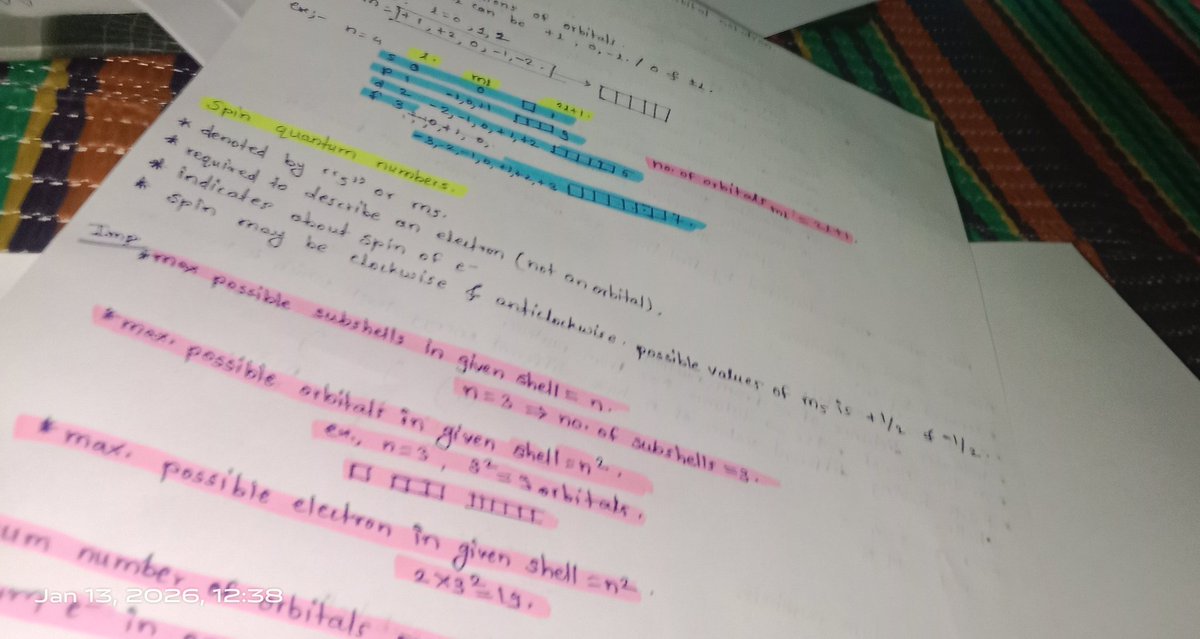 of orbitals.
l can be +1, 0, -1. / 0 & ±1.
l = 0, 1, 2
ex:-
+1, +2, 0, -1, -2.
n=4
l. ms 2l+1.
s 0 0 1
p 1 -1, 0, +1 3
d 2 -2, -1, 0, +1, +2 5
f 3 -3, -2, -1, 0, +1, +2, +3 7.
no. of orbitals = 2l+1.
Spin quantum numbers.
* denoted by "s" or ms.
* required to describe an electron (not an orbital).
* indicates about spin of e-
* spin may be clockwise & anticlockwise. possible values of ms is +1/2 & -1/2.
Imp
*max possible subshells in given shell = n.
n=3 => no. of subshells = 3.
*max. possible orbitals in given shell = n².
ex., n=3, 3² = 9 orbitals.
*max. possible electron in given shell = n².
2×3² = 18.
um number of orbitals
e- in
Jan 13, 2026, 12:38